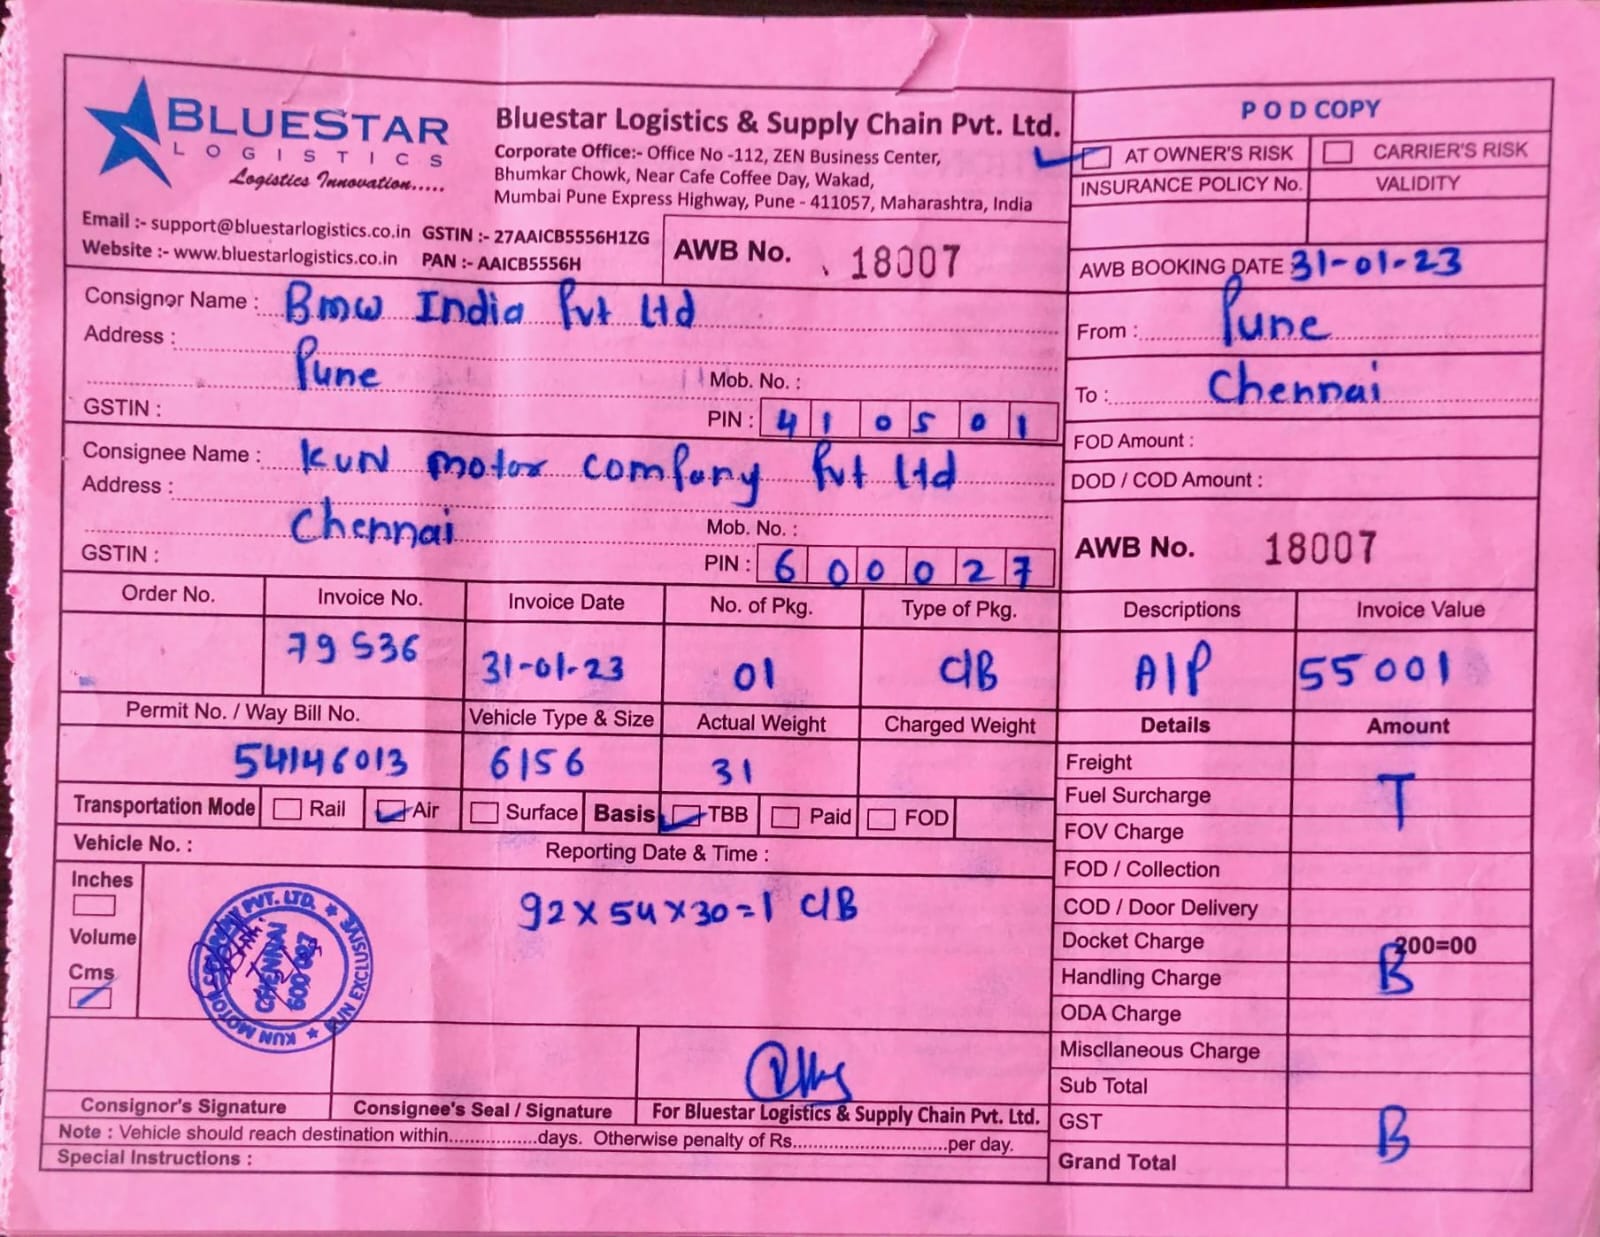 BLUESTAR
LOGISTICS
Logistics Innovation.....
Bluestar Logistics & Supply Chain Pvt. Ltd.
Corporate Office:- Office No -112, ZEN Business Center,
Bhumkar Chowk, Near Cafe Coffee Day, Wakad,
Mumbai Pune Express Highway, Pune - 411057, Maharashtra, India
Email :- support@bluestarlogistics.co.in GSTIN :- 27AAICB5556H1ZG
Website :- www.bluestarlogistics.co.in PAN :- AAICB5556H
AWB No. 18007
POD COPY
AT OWNER'S RISK CARRIER'S RISK
INSURANCE POLICY No. VALIDITY
AWB BOOKING DATE 31-01-23
From : Pune
To : Chennai
FOD Amount :
DOD / COD Amount :
AWB No. 18007
Consignor Name : Bmw India Pvt Ltd
Address :
Pune Mob. No. :
GSTIN : PIN : 410501
Consignee Name : KUN motor company Pvt Ltd
Address :
Chennai Mob. No. :
GSTIN : PIN : 600027
Order No. Invoice No. Invoice Date No. of Pkg. Type of Pkg. Descriptions Invoice Value
79536 31-01-23 01 C/B A/P 55001
Permit No. / Way Bill No. Vehicle Type & Size Actual Weight Charged Weight Details Amount
54146013 6156 31
Transportation Mode Rail Air Surface Basis TBB Paid FOD
Vehicle No. : Reporting Date & Time :
Inches
Volume
Cms
92×54×30=1 C/B
KUN EXCLUSIVE
KUN MOTOR
PVT. LTD.
CHENNAI
600 027
Freight
T
Fuel Surcharge
FOV Charge
FOD / Collection
COD / Door Delivery
Docket Charge 200=00
B
Handling Charge
ODA Charge
Miscllaneous Charge
Sub Total
GST
B
Grand Total
Consignor's Signature Consignee's Seal / Signature For Bluestar Logistics & Supply Chain Pvt. Ltd.
Note : Vehicle should reach destination within.................days. Otherwise penalty of Rs............................per day.
Special Instructions :